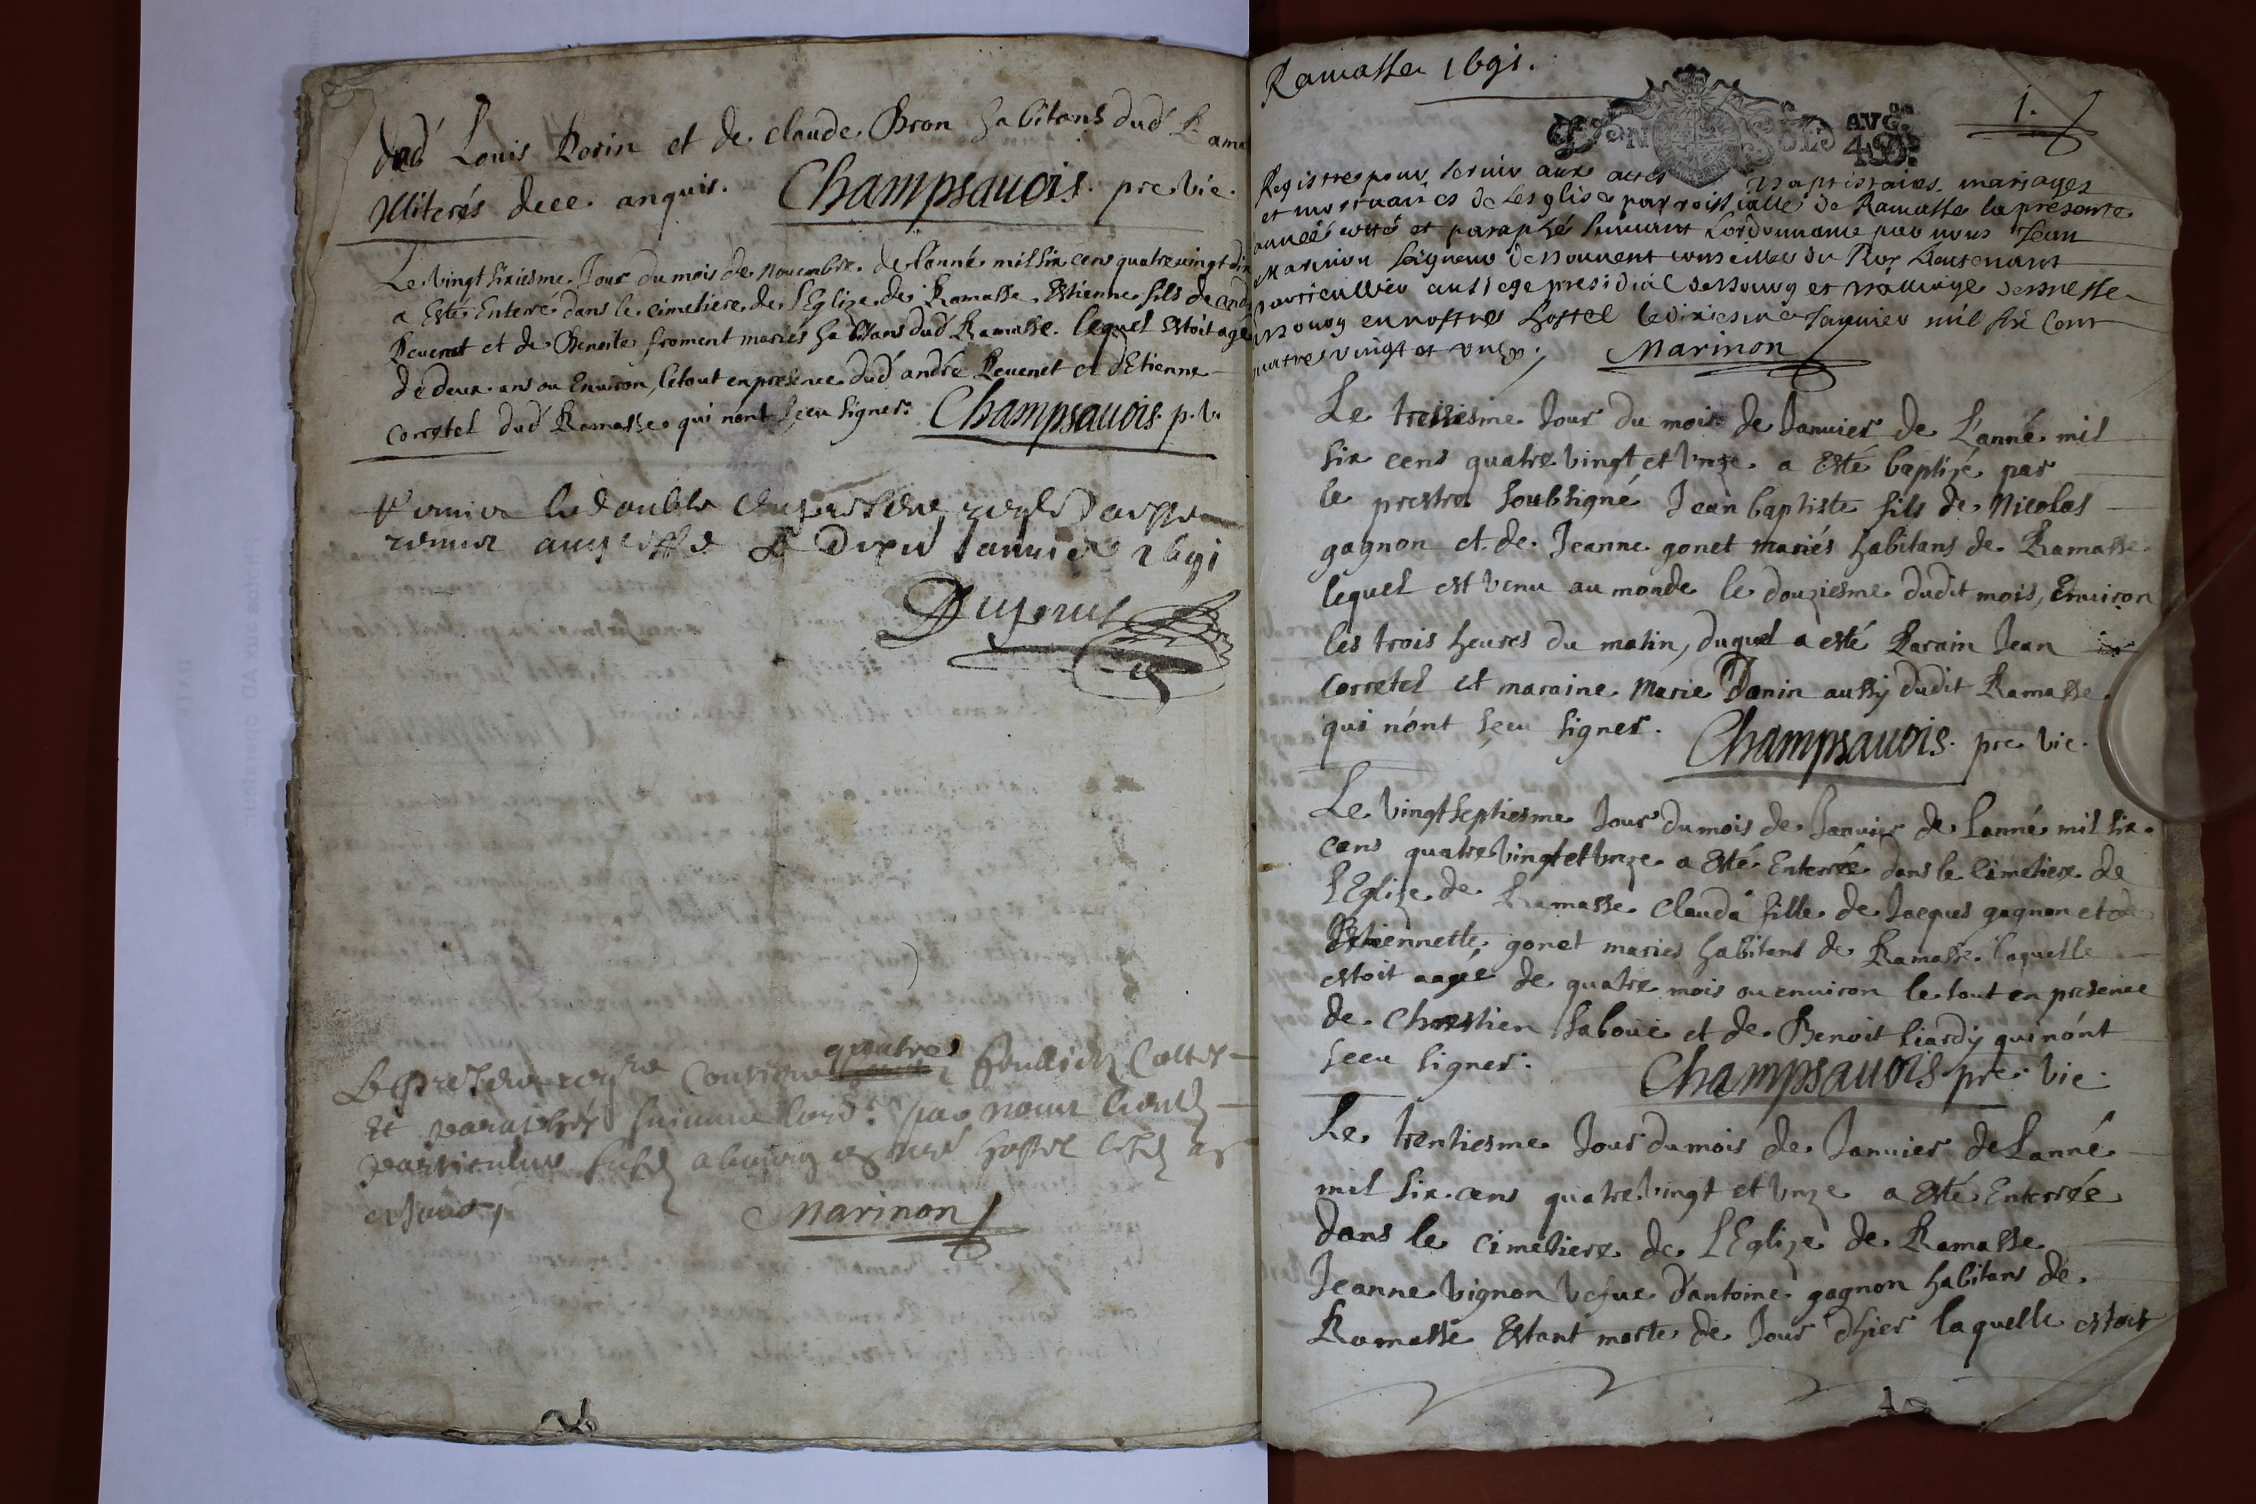 dud Louis Rosin et de claude Bron habitans dud Rama
Illiterés de ce anquis. Champsauois. pre vic.
Le vingt sixiesme Jour du mois de Nouembre de l'anné mil six cens quatre vingt dix
a Esté Enteré dans le cimetiere de l'Eglize de Ramasse Estienne fils de andr
Reuenet et de Benoite froment mariés habitans dud Ramasse. lequel estoit agé
de deux ans ou Enuiron, le tout en presence dud andré Reuenet et d'Etienne
corretel dud Ramasse qui n'ont sceu signer. Champsauois. p. v.
le double
au greffe Januier 1691
quatre
Le present feuillets Cottés
Et paraphés suiuant par nous
particulier a bourg hostel
Marinon
Ramasse 1691.
1.
GEN SOLS AVG. 4 D.
Registre pour seruir aux actes baptistaires mariages
et mortuaires de Lesglise parroissialle de Ramasse la presente
année cotté et paraphé suiuant Lordonnance par nous Jean
Marinon seigneur de conseiller du Roy Lieutenant
particullier au siege presidial de bourg et
bourg en nostre hostel le dixiesme Januier mil six cent
quatre vingt et vnze. Marinon
Le tressiesme Jour du mois de Januier de L'anné mil
six cens quatre vingt et vnze a Esté baptizé par
le prestre soubsigné Jean baptiste fils de Nicolas
gagnon et de Jeanne gonet mariés habitans de Ramasse
lequel est venu au monde le douziesme dudit mois, Enuiron
les trois heures du matin, duquel a esté Parain Jean
corretel et maraine Marie Danin aussy dudit Ramasse
qui n'ont sceu signer. Champsauois. pre vic.
Le vingt septiesme Jour du mois de Januier de Lanné mil six
cens quatre vingt et vnze a Esté Enterrée dans le cimetiere de
l'Eglize de Ramasse clauda fille de Jacques gagnon et de
Etiennette gonet mariés habitans de Ramasse laquelle
estoit aagée de quatre mois ou enuiron le tout en presence
de Chrestien saboüé et de Benoit liardy qui n'ont
sceu signer. Champsauois pre. vic.
Le trentiesme Jour du mois de Januier de Lanné
mil six cens quatre vingt et vnze a Esté Enterrée
dans le cimetiere de l'Eglize de Ramasse
Jeanne vignon vefue d'antoine gagnon habitans de
Ramasse Estant morte de Jour d'hier laquelle estoit